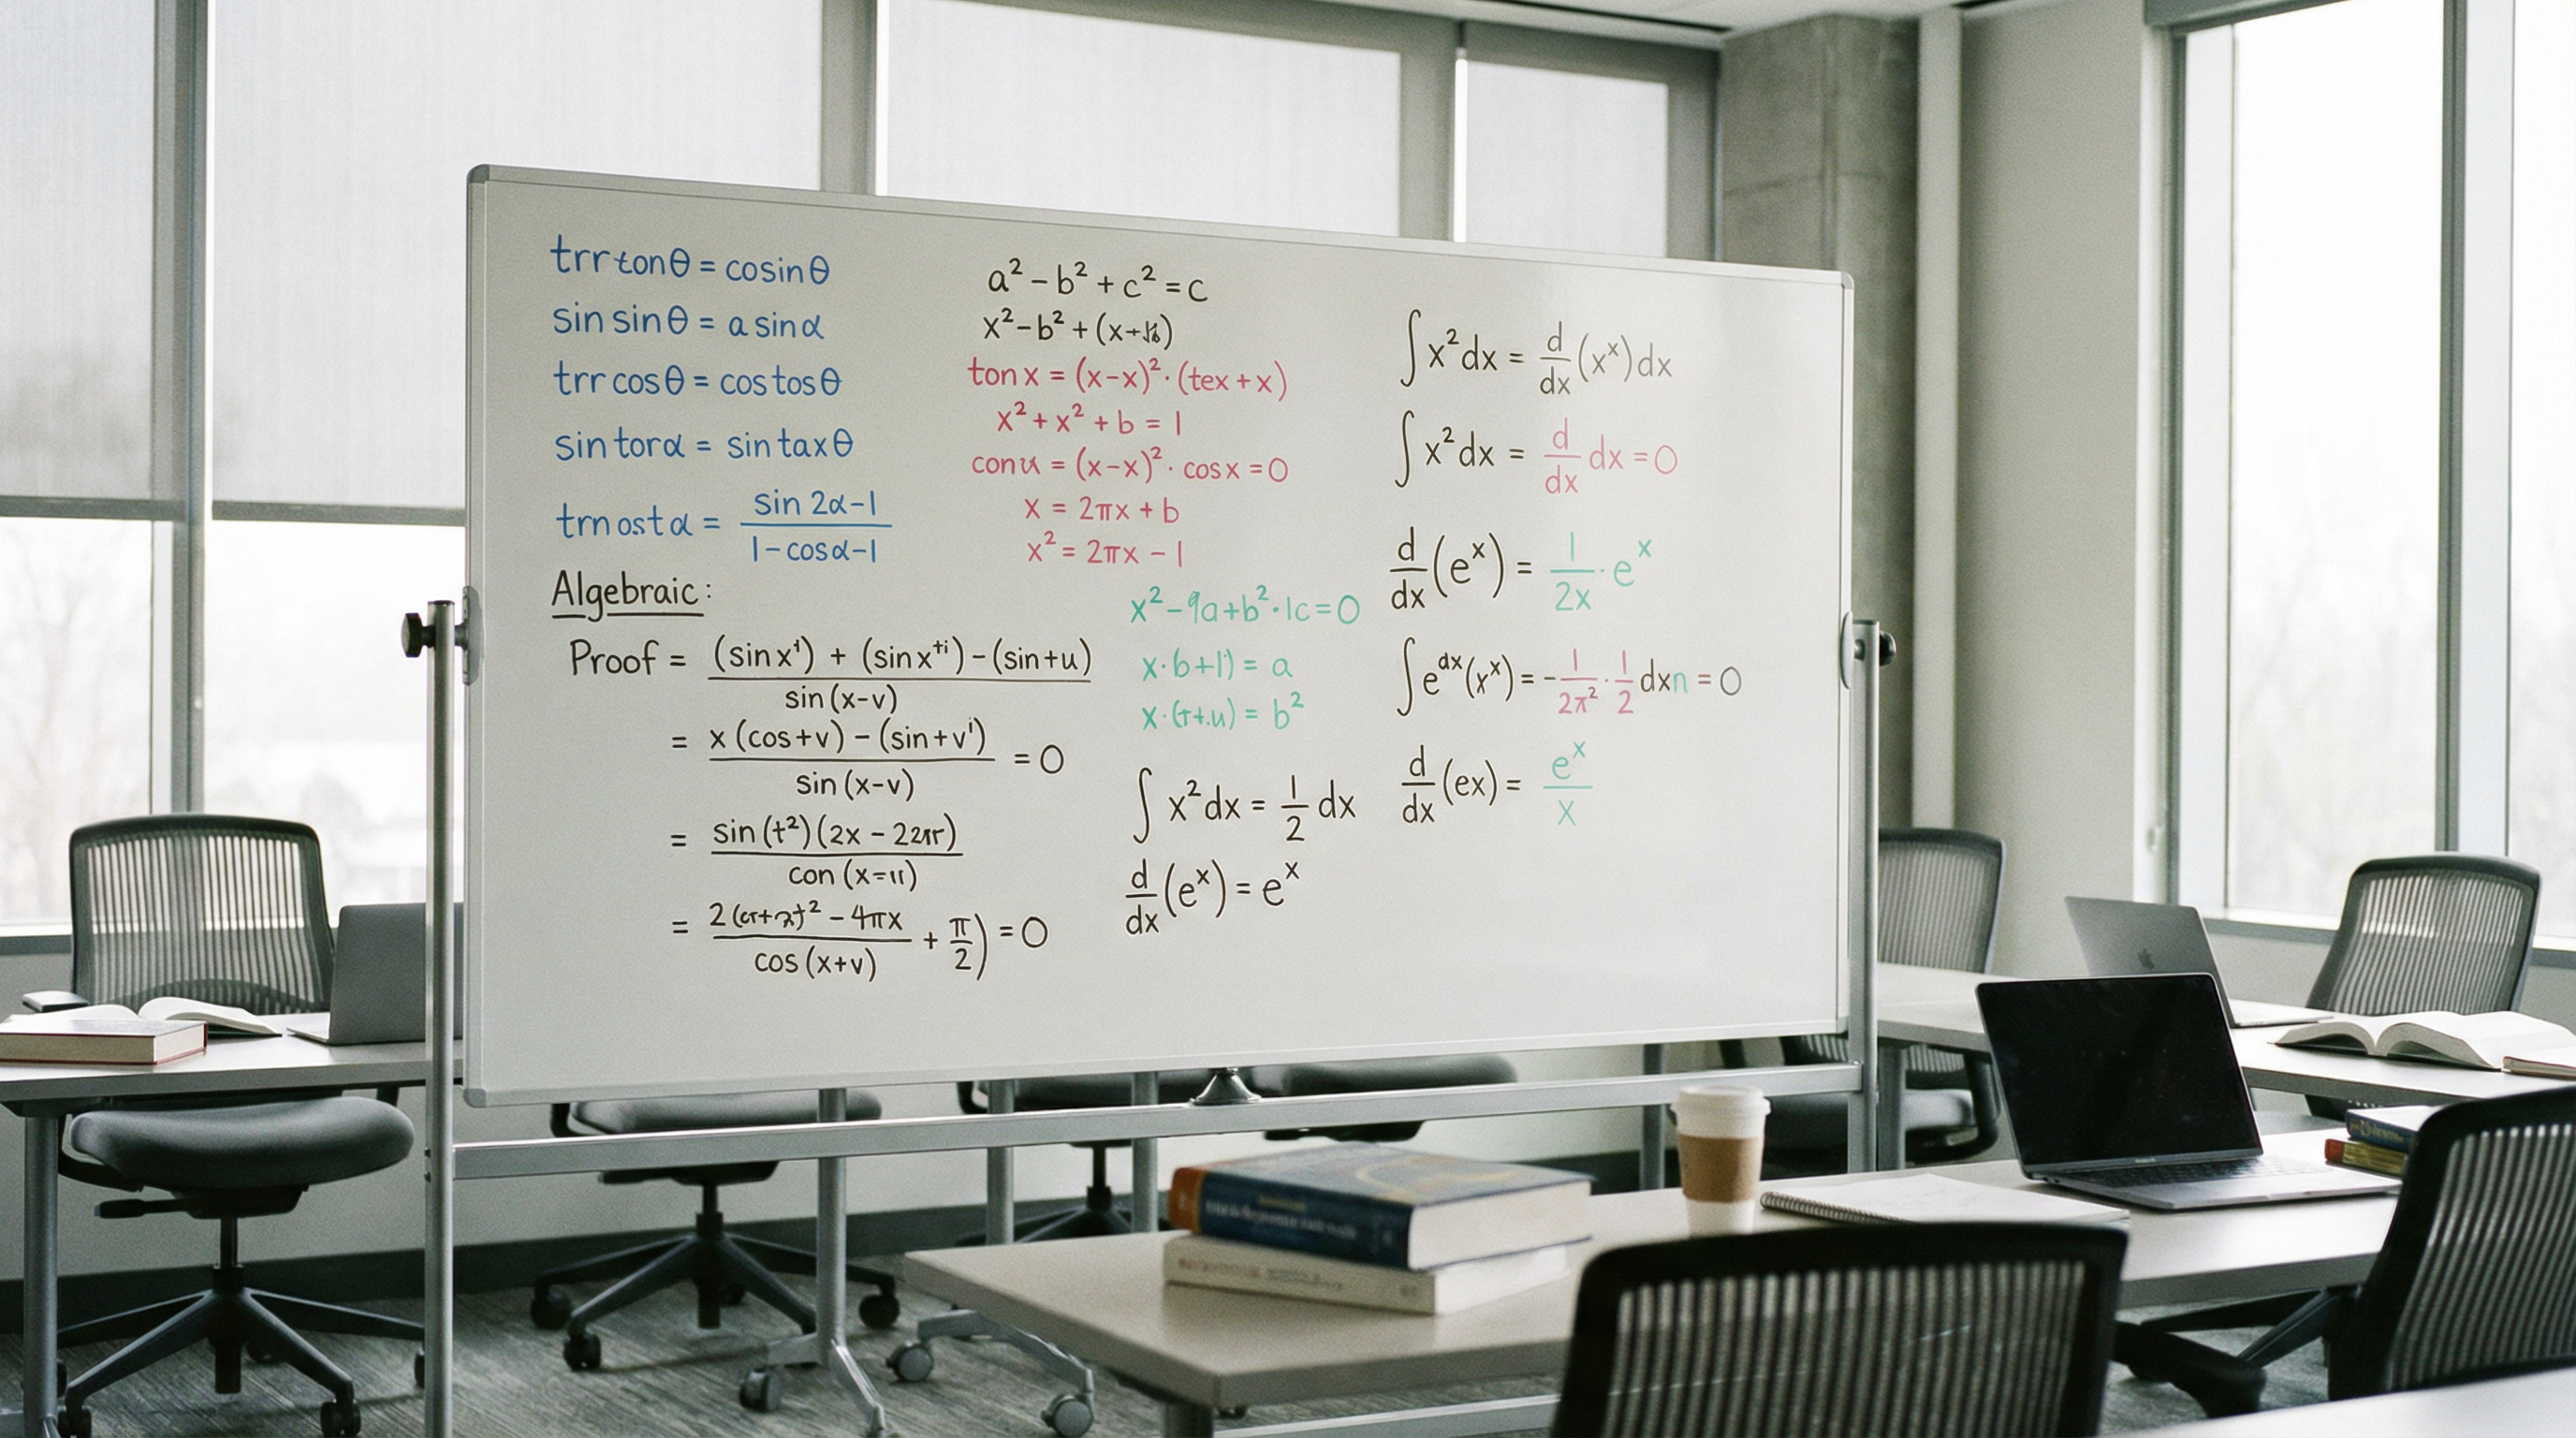 trr tonθ = cosinθ
sin sinθ = a sinα
trr cosθ = cos tosθ
sin torα = sin taxθ
trn ost α = sin 2α-1 / 1-cosα-1
Algebraic:
Proof = (sin x¹) + (sin x⁺ⁱ) - (sin+u) / sin (x-v)
= x (cos+v) - (sin+v¹) / sin (x-v) = 0
= sin (t²)(2x - 22π) / con (x=11)
= 2 - 4πx / cos (x+v) + π/2) = 0
a² - b² + c² = c
x² - b² + (x+
ton x = (x-x)² · (tex + x)
x² + x² + b = 1
con u = (x-x)² · cos x = 0
x = 2πx + b
x² = 2πx - 1
x² - 9a + b² · 1c = 0
x · b + 1) = a
x · (t+.u) = b²
∫ x² dx = 1/2 dx
d/dx (eˣ) = eˣ
∫ x² dx = d/dx (xˣ) dx
∫ x² dx = d/dx dx = 0
d/dx (eˣ) = 1/2x · eˣ
∫ eᵈˣ (xˣ) = - 1/2π² · 1/2 dxn = 0
d/dx (ex) = eˣ/x